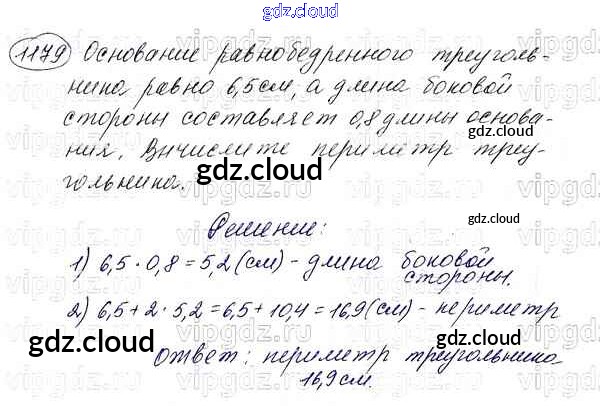 gdz.cloud
1179 Основание равнобедренного треуголь-
ника равно 6,5 см, а длина боковой
стороны составляет 0,8 длины основа-
ния. Вычислите периметр треу-
гольника.
gdz.cloud
gdz.cloud
gdz.cloud
Решение:
1) 6,5 · 0,8 = 5,2 (см) - длина боковой
стороны.
2) 6,5 + 2 · 5,2 = 6,5 + 10,4 = 16,9 (см) - периметр
gdz.cloud
gdz.cloud
Ответ: периметр треугольника
16,9 см.